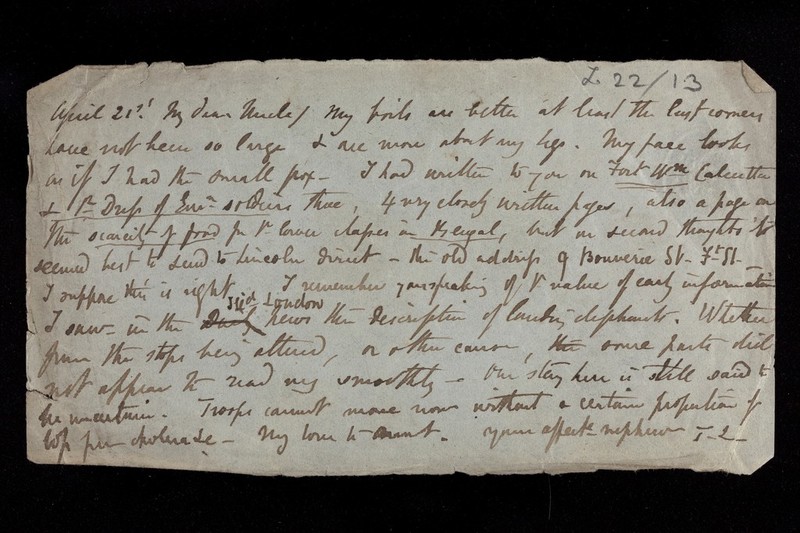 L 22/13
April 21st My dear Uncle / My boils are better at least the last comers
have not been so large & are more about my legs. My face looks
as if I had the small pox - I had written to you on Fort Wm Calcutta
& ye Dress of Eurn soldiers there, 4 very closely written pages, also a page on
the scarcity of food for ye lower classes in Bengal, but on second thoughts it
seemed best to send to Lincoln direct - the old address 9 Bouverie St. Ft St.
I suppose this is right I remember your speaking of ye value of early information
I saw in the Illd London news the description of landing elephants. Whether
from the stops being altered, or other cause, the some parts did
not appear to read very smoothly - Our stay here is still said to
be uncertain. Troops cannot move now without a certain proportion of
loss per cholera &c - My love to Aunt. Your affecte nephew